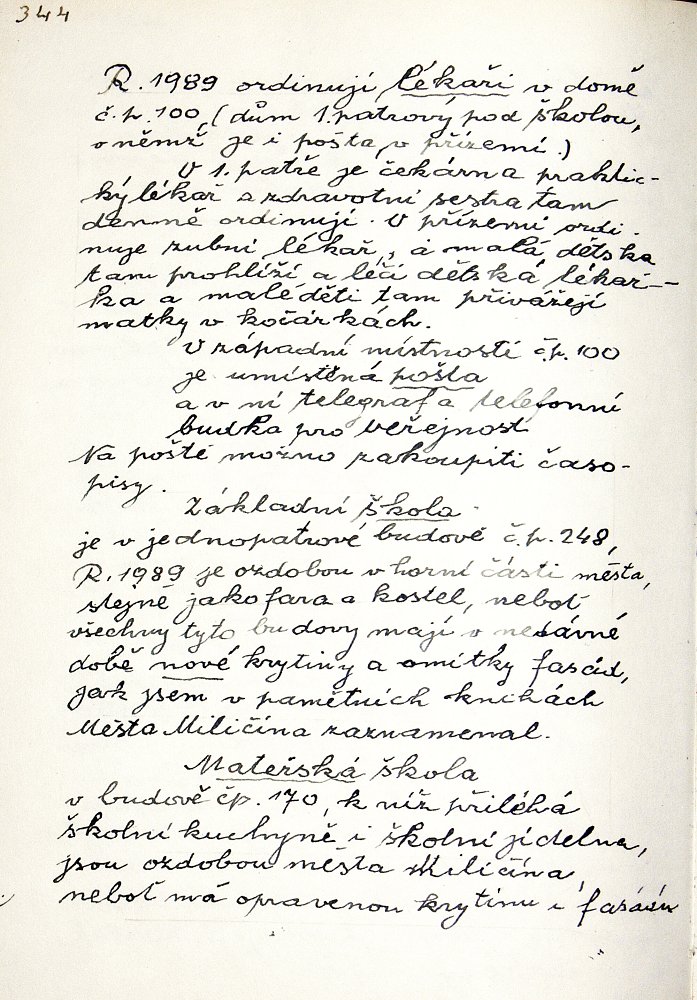 344
R. 1989 ordinují lékaři v domě
č.p. 100, (dům 1. patrový pod školou,
v němž je i pošta, v přízemí.)
V 1. patře je čekárna praktic-
ký lékař a zdravotní sestra tam
denně ordinují. V přízemí ordi-
nuje zubní lékař, a malá dětska
tam prohlíží a léčí dětská lékař-
ka a malé děti tam přivážejí
matky v kočárkách.
V západní místnosti č.p. 100
je umístěná pošta
a v ní telegraf a telefonní
budka pro veřejnost.
Na poště možno zakoupiti časo-
pisy.
Základní škola
je v jednopatrové budově č.p. 248,
R. 1989 je ozdobou v horní části města,
stejně jako fara a kostel, neboť
všechny tyto budovy mají v nedávné
době nové krytiny a omítky fasád,
jak jsem v pamětních knihách
Města Miličína zaznamenal.
Mateřská škola
v budově čp. 170, k níž přiléhá
školní kuchyně i školní jídelna,
jsou ozdobou města Miličína,
neboť má opravenou krytinu i fasádu